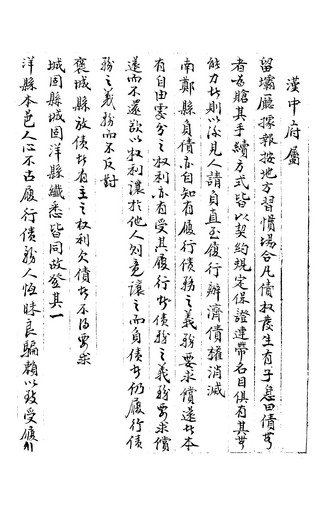 漢中府屬
留壩廳據報按地方習慣場合凡債权發生有子息田債等
者甚賒其手續方式皆以契約規定保證連帶名目俱有其無
能力者則以保見人請負直至履行辦濟債權消滅
南鄭縣負債亦自知有履行債務之義務要求償還者本
有自由處分之权利亦有受其履行者債務之義務要求償
還而不還欲以权利讓於他人則竟讓之而負債者仍履行債
務之義務而不反對
褒城縣放債者有主之权利欠債者不得要求
城固縣城固洋縣纖悉皆同故登其一
洋縣本邑人心不古履行債務人恆昧良騙賴以致受履行